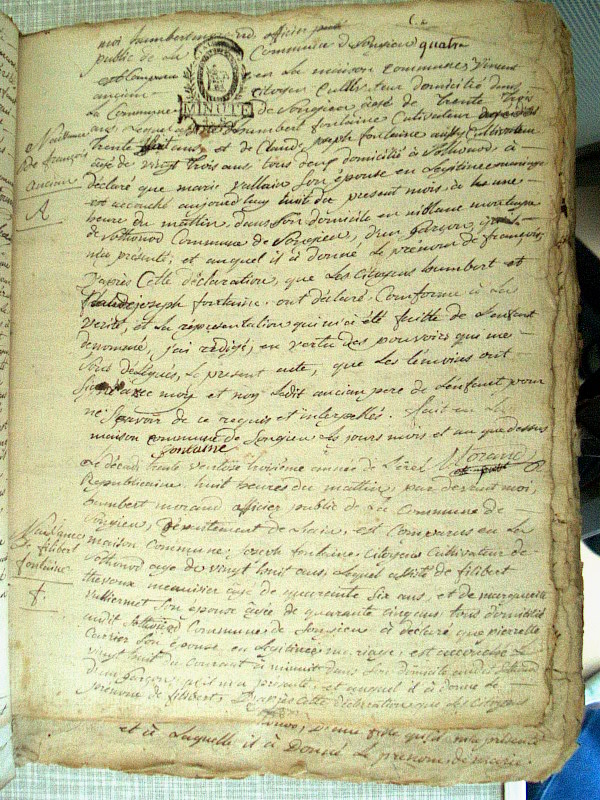 moi humbert morand officier public
public de la Commune de Songieu quatre
en La maison commune, vincent
ancian citoyen Cultivateur domicilié dans
MINUTE
La Commune de Songieu agé de trente trois
ans, Lequel assisté humbert fontaine Cultivateur agé de
trente huit ans, et de Claude joseph fontaine aussi Cultivateur
agé de vingt trois ans, tous deux domicilié à Sothonod, à
déclaré que marie vallain Son épouse en Legitime mariage
est accouché aujourd'huy huit du present mois de une
heure du mattin, dans Son domicile en
de Sothonod Commune de Songieu, d'un garçon, qu'il
m'a présenté, et auquel il à donné Le prenom de françois,
d'après Cette déclaration, que Les citoyens humbert et
Claude joseph fontaine, ont déclaré Conforme à La
verité, et La représentation qui m'a été faitte de L'enfant
denommé, j'ai rédigé, en vertu des pouvoirs qui me
Sont délégués, Le present acte, que Les témoins ont
signé avec moi, et non Ledit ancian pere de L'enfant pour
ne Savoir de ce requis et interpellés. fait en La
maison commune de Songieu Les jours mois et an que dessus
fontaine Morand
Le décadi trente ventose troisième année de L'ere
Republicaine, huit heures du mattin, par devant moi,
humbert morand officier public de La Commune de
Songieu, Département de L'ain, est Comparus en La
maison Commune, joseph fontaine, Citoyens Cultivateur de
Sothonod agé de vingt huit ans, Lequel assisté de filibert
thevenon meunisier agé de quarente six ans, et de marguerite
vulliermet Son épouse agée de quarante cinq ans tous domicilié
audit Sothonod Commune, de Songieu à déclaré que pierrette
Carrier Son épouse en Legitime mariage, est accouchée Le
vingt huit du Courant à minuit dans Son domicile audit Sothonod
d'un garçon, qu'il m'a presenté, et auquel il à donné Le
prenom de filibert, D'après Cette déclaration que Les Citoyens
d'une fille qu'il m'a presenté
et à Laquelle il à Donné Le prenom, de marie.
Naissance
De françois
ancian
Naissance
De filibert
fontaine